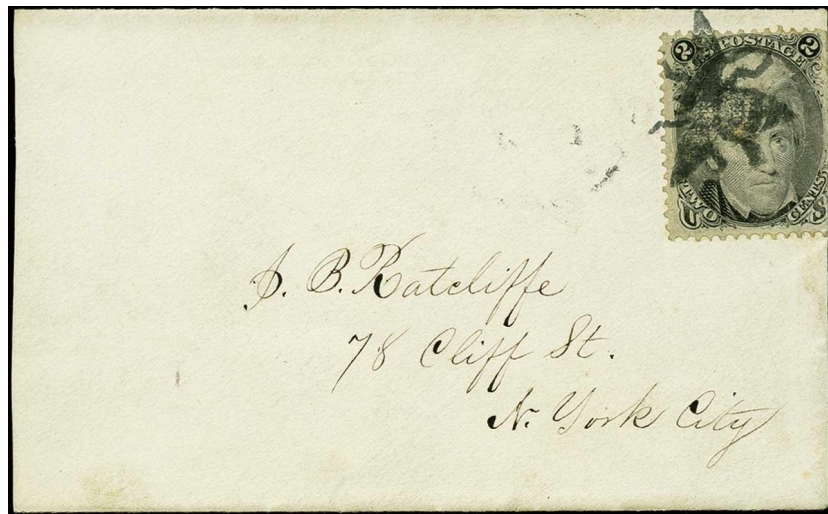 2 U.S. POSTAGE 2
U TWO CENTS S
J. B. Ratcliffe
78 Cliff St.
N. York City